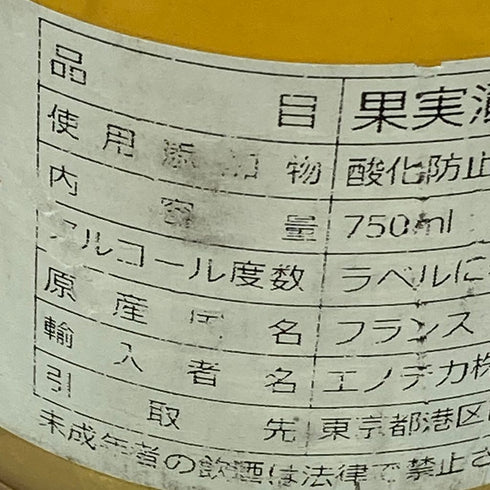 品目 果実酒
使用添加物 酸化防止
内容量 750ml
アルコール度数 ラベルに
原産国名 フランス
輸入者名 エノテカ株
引取先 東京都港区
未成年者の飲酒は法律で禁止さ